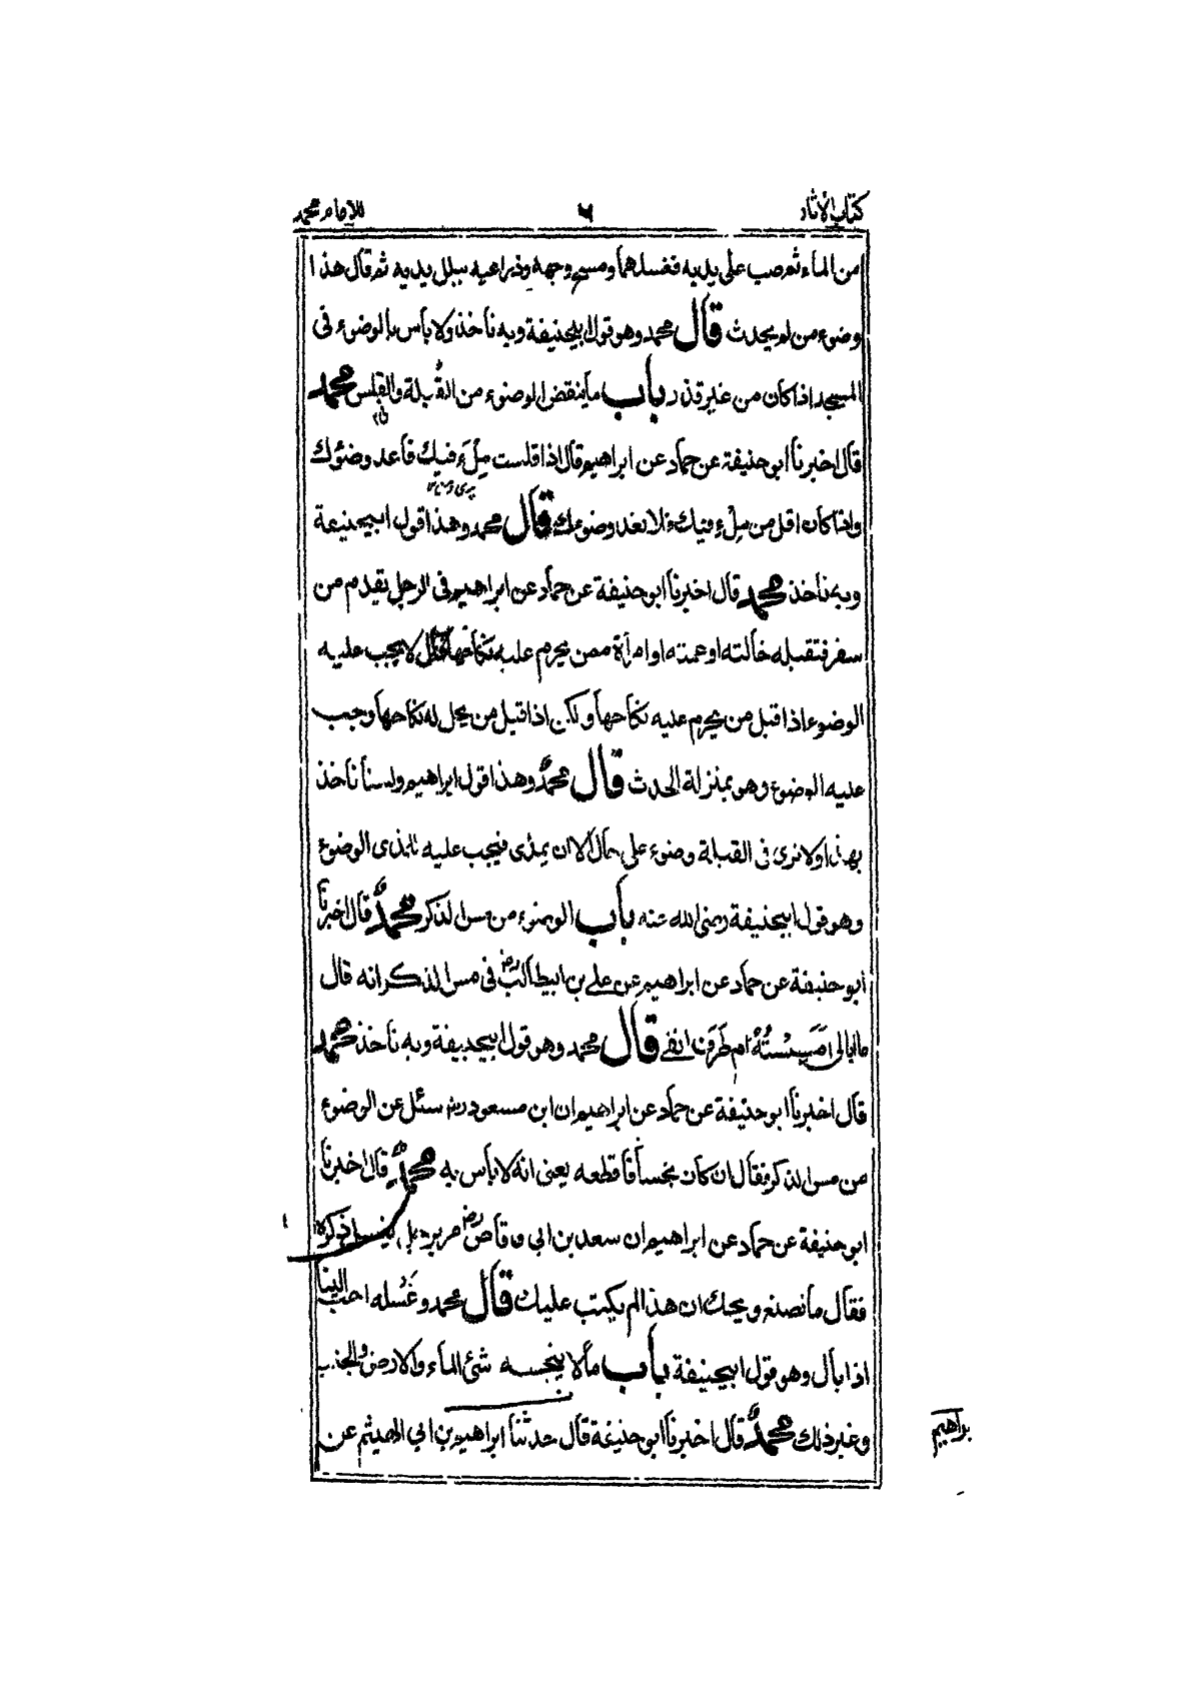 كتاب الأثار ٦ للإمام محمد
من الماء ثم صب على يديه فغسلهما ومسح وجهه وذراعيه ببلل يديه ثم قال هذا
وضوء من لم يحدث قال محمد وهو قول ابيحنيفة وبه ناخذ ولا باس بالوضوء فى
المسجد اذا كان من غير قذر باب ما ينقض الوضوء من القُبلة والقلس محمد
قال اخبرنا ابوحنيفة عن حماد عن ابراهيم قال اذا قلست مِلْءَ فيك فاعد وضوئك
واذا كان اقل من مِلْءِ فيك فلا تعد وضوءك قال محمد وهذا قول ابيحنيفة
وبه ناخذ محمد قال اخبرنا ابوحنيفة عن حماد عن ابراهيم فى الرجل يقدم من
سفر فتقبله خالته او عمته او امرأة ممن يحرم عليه نكاحها قال لا يجب عليه
الوضوء اذا قبل من يحرم عليه نكاحها ولكن اذا قبل من يحل له نكاحها وجب
عليه الوضوء وهو بمنزلة الحدث قال محمدٌ وهذا قول ابراهيم ولسنا ناخذ
بهذا ولا نرى فى القبلة وضوء على حال الا ان يمذى فيجب عليه للمذى الوضوء
وهو قول ابيحنيفة رضى الله عنه باب الوضوء من مس الذكر محمدٌ قال اخبرنا
ابو حنيفة عن حماد عن ابراهيم عن على بن ابيطالب رض فى مس الذكر انه قال
ما ابالى امَسِسْتُهُ ام طرَفَ انفى قال محمد وهو قول ابيحنيفة وبه ناخذ محمد
قال اخبرنا ابو حنيفة عن حماد عن ابراهيم ان ابن مسعود رض سئل عن الوضوء
من مس الذكر فقال ان كان نجسا فاقطعه يعنى انه لا باس به محمدٌ قال اخبرنا
ابو حنيفة عن حماد عن ابراهيم ان سعد بن ابى وقاص رض مر برجل يغسل ذكره
فقال ما تصنع ويحك ان هذا لم يكتب عليك قال محمد وغَسْله احب الينا
اذا بال وهو قول ابيحنيفة باب ما لا ينجسه شئ الماء والارض والجنب
وغير ذلك محمدٌ قال اخبرنا ابو حنيفة قال حدثنا ابراهيم بن ابى الهيثم عن